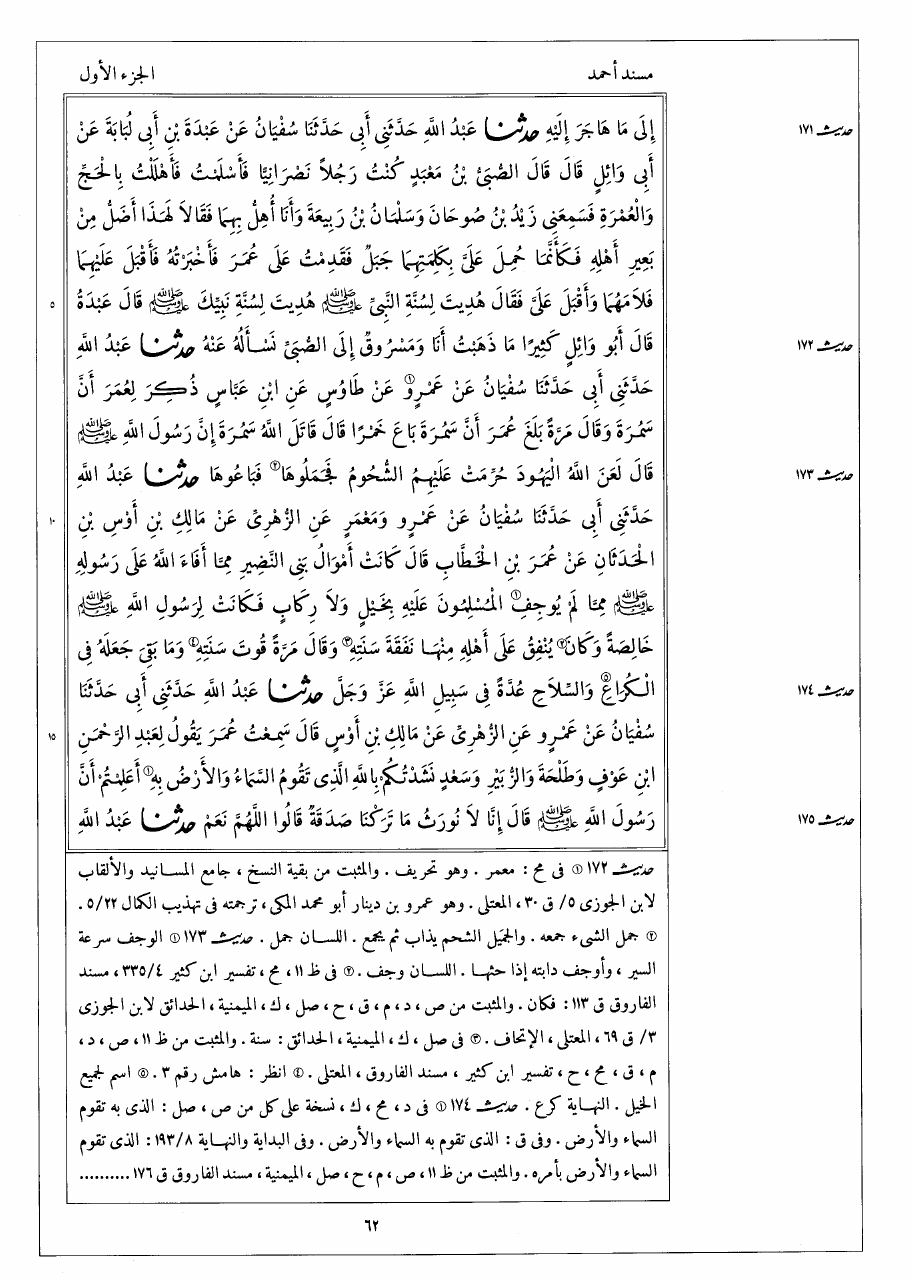 مسند أحمد
الجزء الأول
إِلَى مَا هَاجَرَ إِلَيْهِ حدثنا عَبْدُ اللَّهِ حَدَّثَنِى أَبِى حَدَّثَنَا سُفْيَانُ عَنْ عَبْدَةَ بْنِ أَبِى لُبَابَةَ عَنْ
حديث ١٧١
أَبِى وَائِلٍ قَالَ قَالَ الصُّبَىُّ بْنُ مَعْبَدٍ كُنْتُ رَجُلاً نَصْرَانِيًّا فَأَسْلَمْتُ فَأَهْلَلْتُ بِالْحَجِّ
وَالْعُمْرَةِ فَسَمِعَنِى زَيْدُ بْنُ صُوحَانَ وَسَلْمَانُ بْنُ رَبِيعَةَ وَأَنَا أُهِلُّ بِهِمَا فَقَالاَ لَهَذَا أَضَلُّ مِنْ
بَعِيرِ أَهْلِهِ فَكَأَنَّمَا حُمِلَ عَلَىَّ بِكَلِمَتِهِمَا جَبَلٌ فَقَدِمْتُ عَلَى عُمَرَ فَأَخْبَرْتُهُ فَأَقْبَلَ عَلَيْهِمَا
فَلاَمَهُمَا وَأَقْبَلَ عَلَىَّ فَقَالَ هُدِيتَ لِسُنَّةِ النَّبِىِّ ﷺ هُدِيتَ لِسُنَّةِ نَبِيِّكَ ﷺ قَالَ عَبْدَةُ
٥
قَالَ أَبُو وَائِلٍ كَثِيرًا مَا ذَهَبْتُ أَنَا وَمَسْرُوقٌ إِلَى الصُّبَىِّ نَسْأَلُهُ عَنْهُ حدثنا عَبْدُ اللَّهِ
حديث ١٧٢
حَدَّثَنِى أَبِى حَدَّثَنَا سُفْيَانُ عَنْ عَمْرٍو① عَنْ طَاوُسٍ عَنِ ابْنِ عَبَّاسٍ ذُكِرَ لِعُمَرَ أَنَّ
سَمُرَةَ وَقَالَ مَرَّةً بَلَغَ عُمَرَ أَنَّ سَمُرَةَ بَاعَ خَمْرًا قَالَ قَاتَلَ اللَّهُ سَمُرَةَ إِنَّ رَسُولَ اللَّهِ ﷺ
قَالَ لَعَنَ اللَّهُ الْيَهُودَ حُرِّمَتْ عَلَيْهِمُ الشُّحُومُ فَجَمَلُوهَا② فَبَاعُوهَا حدثنا عَبْدُ اللَّهِ
حديث ١٧٣
حَدَّثَنِى أَبِى حَدَّثَنَا سُفْيَانُ عَنْ عَمْرٍو وَمَعْمَرٍ عَنِ الزُّهْرِىِّ عَنْ مَالِكِ بْنِ أَوْسِ بْنِ
١٠
الْحَدَثَانِ عَنْ عُمَرَ بْنِ الْخَطَّابِ قَالَ كَانَتْ أَمْوَالُ بَنِى النَّضِيرِ مِمَّا أَفَاءَ اللَّهُ عَلَى رَسُولِهِ
ﷺ مِمَّا لَمْ يُوجِفِ① الْمُسْلِمُونَ عَلَيْهِ بِخَيْلٍ وَلاَ رِكَابٍ فَكَانَتْ لِرَسُولِ اللَّهِ ﷺ
خَالِصَةً وَكَانَ② يُنْفِقُ عَلَى أَهْلِهِ مِنْهَا نَفَقَةَ سَنَتِهِ③ وَقَالَ مَرَّةً قُوتَ سَنَتِهِ④ وَمَا بَقِىَ جَعَلَهُ فِى
الْكُرَاعِ⑤ وَالسِّلاَحِ عُدَّةً فِى سَبِيلِ اللَّهِ عَزَّ وَجَلَّ حدثنا عَبْدُ اللَّهِ حَدَّثَنِى أَبِى حَدَّثَنَا
حديث ١٧٤
سُفْيَانُ عَنْ عَمْرٍو عَنِ الزُّهْرِىِّ عَنْ مَالِكِ بْنِ أَوْسٍ قَالَ سَمِعْتُ عُمَرَ يَقُولُ لِعَبْدِ الرَّحْمَنِ
١٥
ابْنِ عَوْفٍ وَطَلْحَةَ وَالزُّبَيْرِ وَسَعْدٍ نَشَدْتُكُمْ بِاللَّهِ الَّذِى تَقُومُ السَّمَاءُ وَالأَرْضُ بِهِ① أَعَلِمْتُمْ أَنَّ
رَسُولَ اللَّهِ ﷺ قَالَ إِنَّا لاَ نُورَثُ مَا تَرَكْنَا صَدَقَةٌ قَالُوا اللَّهُمَّ نَعَمْ حدثنا عَبْدُ اللَّهِ
حديث ١٧٥
حديث ١٧٢ ① فى مح : معمر . وهو تحريف . والمثبت من بقية النسخ ، جامع المسانيد والألقاب
لابن الجوزى ٥/ ق ٣٠ ، المعتلى . وهو عمرو بن دينار أبو محمد المكى ، ترجمته فى تهذيب الكمال ٥/٢٢ .
② جمل الشىء جمعه . والجميل الشحم يذاب ثم يجمع . اللسان جمل . حديث ١٧٣ ① الوجف سرعة
السير ، وأوجف دابته إذا حثها . اللسان وجف . ② فى ظ ١١ ، مح ، تفسير ابن كثير ٣٣٥/٤ ، مسند
الفاروق ق ١١٣ : فكان . والمثبت من ص ، د ، م ، ق ، ح ، صل ، ك ، الميمنية ، الحدائق لابن الجوزى
٣/ ق ٦٩ ، المعتلى ، الإتحاف . ③ فى صل ، ك ، الميمنية ، الحدائق : سنة . والمثبت من ظ ١١ ، ص ، د ،
م ، ق ، مح ، ح ، تفسير ابن كثير ، مسند الفاروق ، المعتلى . ④ انظر : هامش رقم ٣ . ⑤ اسم لجميع
الخيل . النهاية كرع . حديث ١٧٤ ① فى د ، مح ، ك ، نسخة على كل من ص ، صل : الذى به تقوم
السماء والأرض . وفى ق : الذى تقوم به السماء والأرض . وفى البداية والنهاية ١٩٣/٨ : الذى تقوم
السماء والأرض بأمره . والمثبت من ظ ١١ ، ص ، م ، ح ، صل ، الميمنية ، مسند الفاروق ق ١٧٦ ..........
٦٢